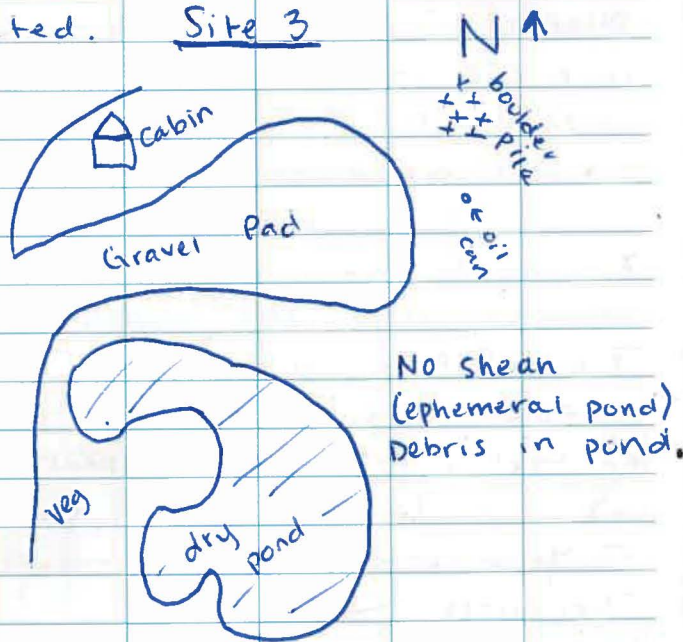 ted. Site 3
N
cabin
boulder
pile
Gravel Pad
oil
can
No shean
(ephemeral pond)
Debris in pond.
veg
dry pond